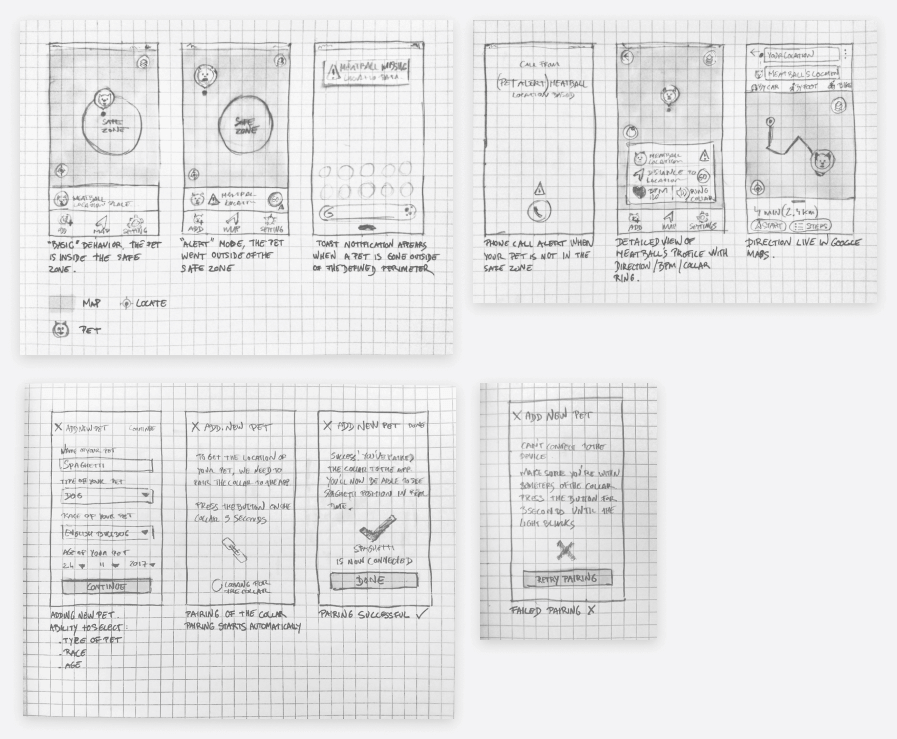 SAFE
ZONE
MEATBALL
"BASIC" BEHAVIOR, THE PET
IS INSIDE THE SAFE
ZONE.
SAFE
ZONE
MEATBALL
ADD
MAP
SETTING
"ALERT" MODE, THE PET
WENT OUTSIDE OF THE
SAFE ZONE
MEATBALL MISSING
G
TOAST NOTIFICATION APPEARS
WHEN A PET IS GONE OUTSIDE
OF THE DEFINED PERIMETER
MAP
LOCATE
PET
CALL FROM
(PET ALERT) MEATBALL
LOCATION BASED
PHONE CALL ALERT WHEN
YOUR PET IS NOT IN THE
SAFE ZONE
MEATBALL
LOCATION
DISTANCE TO
LOCATION
GO
BPM
RING
COLLAR
ADD
MAP
SETTINGS
DETAILED VIEW OF
MEATBALL'S PROFILE WITH
DIRECTION/BPM/COLLAR
RING.
YOUR LOCATION
MEATBALL'S LOCATION
START
STEPS
DIRECTION LIVE IN GOOGLE
MAPS.
X ADD NEW PET
CONTINUE
NAME OF YOUR PET
SPAGHETTI
TYPE OF YOUR PET
DOG
RACE OF YOUR PET
ENGLISH BULLDOG
AGE OF YOUR PET
24 11 2017
CONTINUE
ADDING NEW PET.
ABILITY TO SELECT:
- TYPE OF PET
- RACE
- AGE
X ADD NEW PET
TO GET THE LOCATION OF
YOUR PET, WE NEED TO
PAIR THE COLLAR TO THE APP
PRESS THE BUTTON ON THE
COLLAR 3 SECONDS
LOOKING FOR
THE COLLAR
PAIRING OF THE COLLAR
PAIRING STARTS AUTOMATICALLY
X ADD NEW PET
DONE
SUCCESS! YOU'VE PAIRED
THE COLLAR TO THE APP.
YOU'LL NOW BE ABLE TO SEE
SPAGHETTI POSITION IN REAL
TIME.
SPAGHETTI
IS NOW CONNECTED
DONE
PAIRING SUCCESSFUL ✓
X ADD NEW PET
CAN'T CONNECT TO THE
DEVICE
MAKE SURE YOU'RE WITHIN
METERS OF THE COLLAR
PRESS THE BUTTON FOR
3 SECONDS UNTIL THE
LIGHT BLINKS
RETRY PAIRING
FAILED PAIRING X